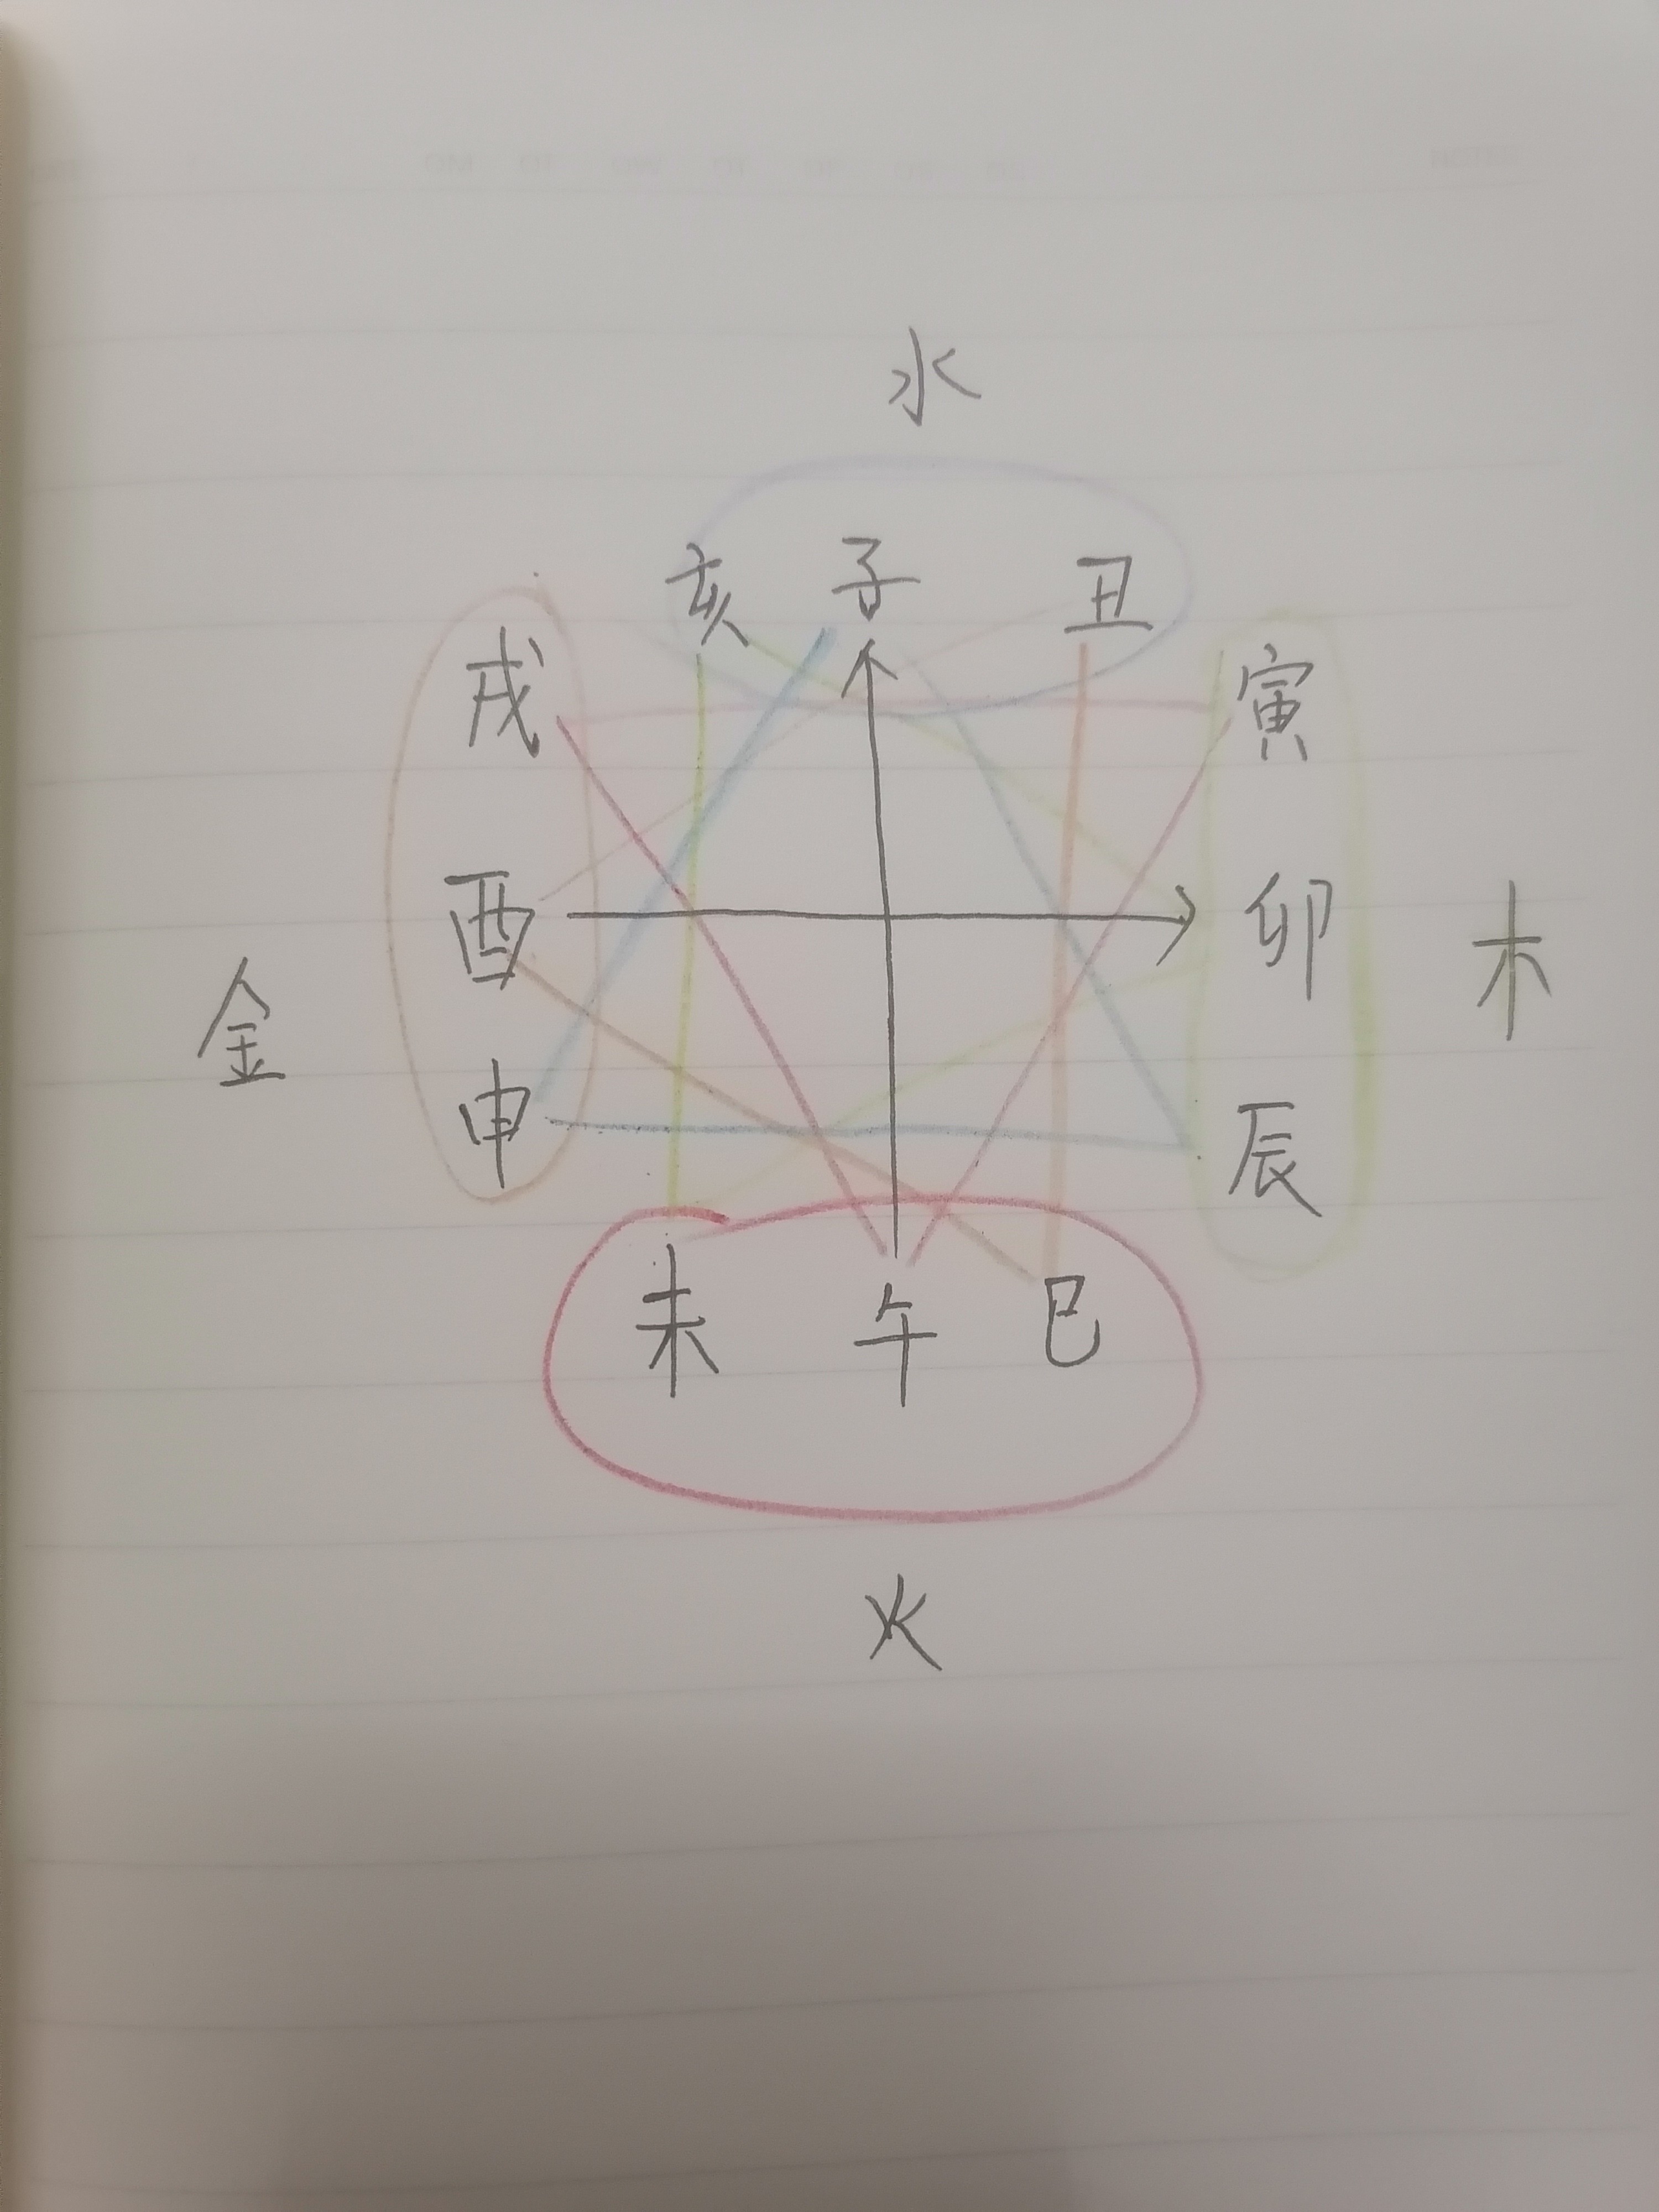 水
亥 子 丑
戌 寅
酉 卯 木
金
申 辰
未 午 巳
火